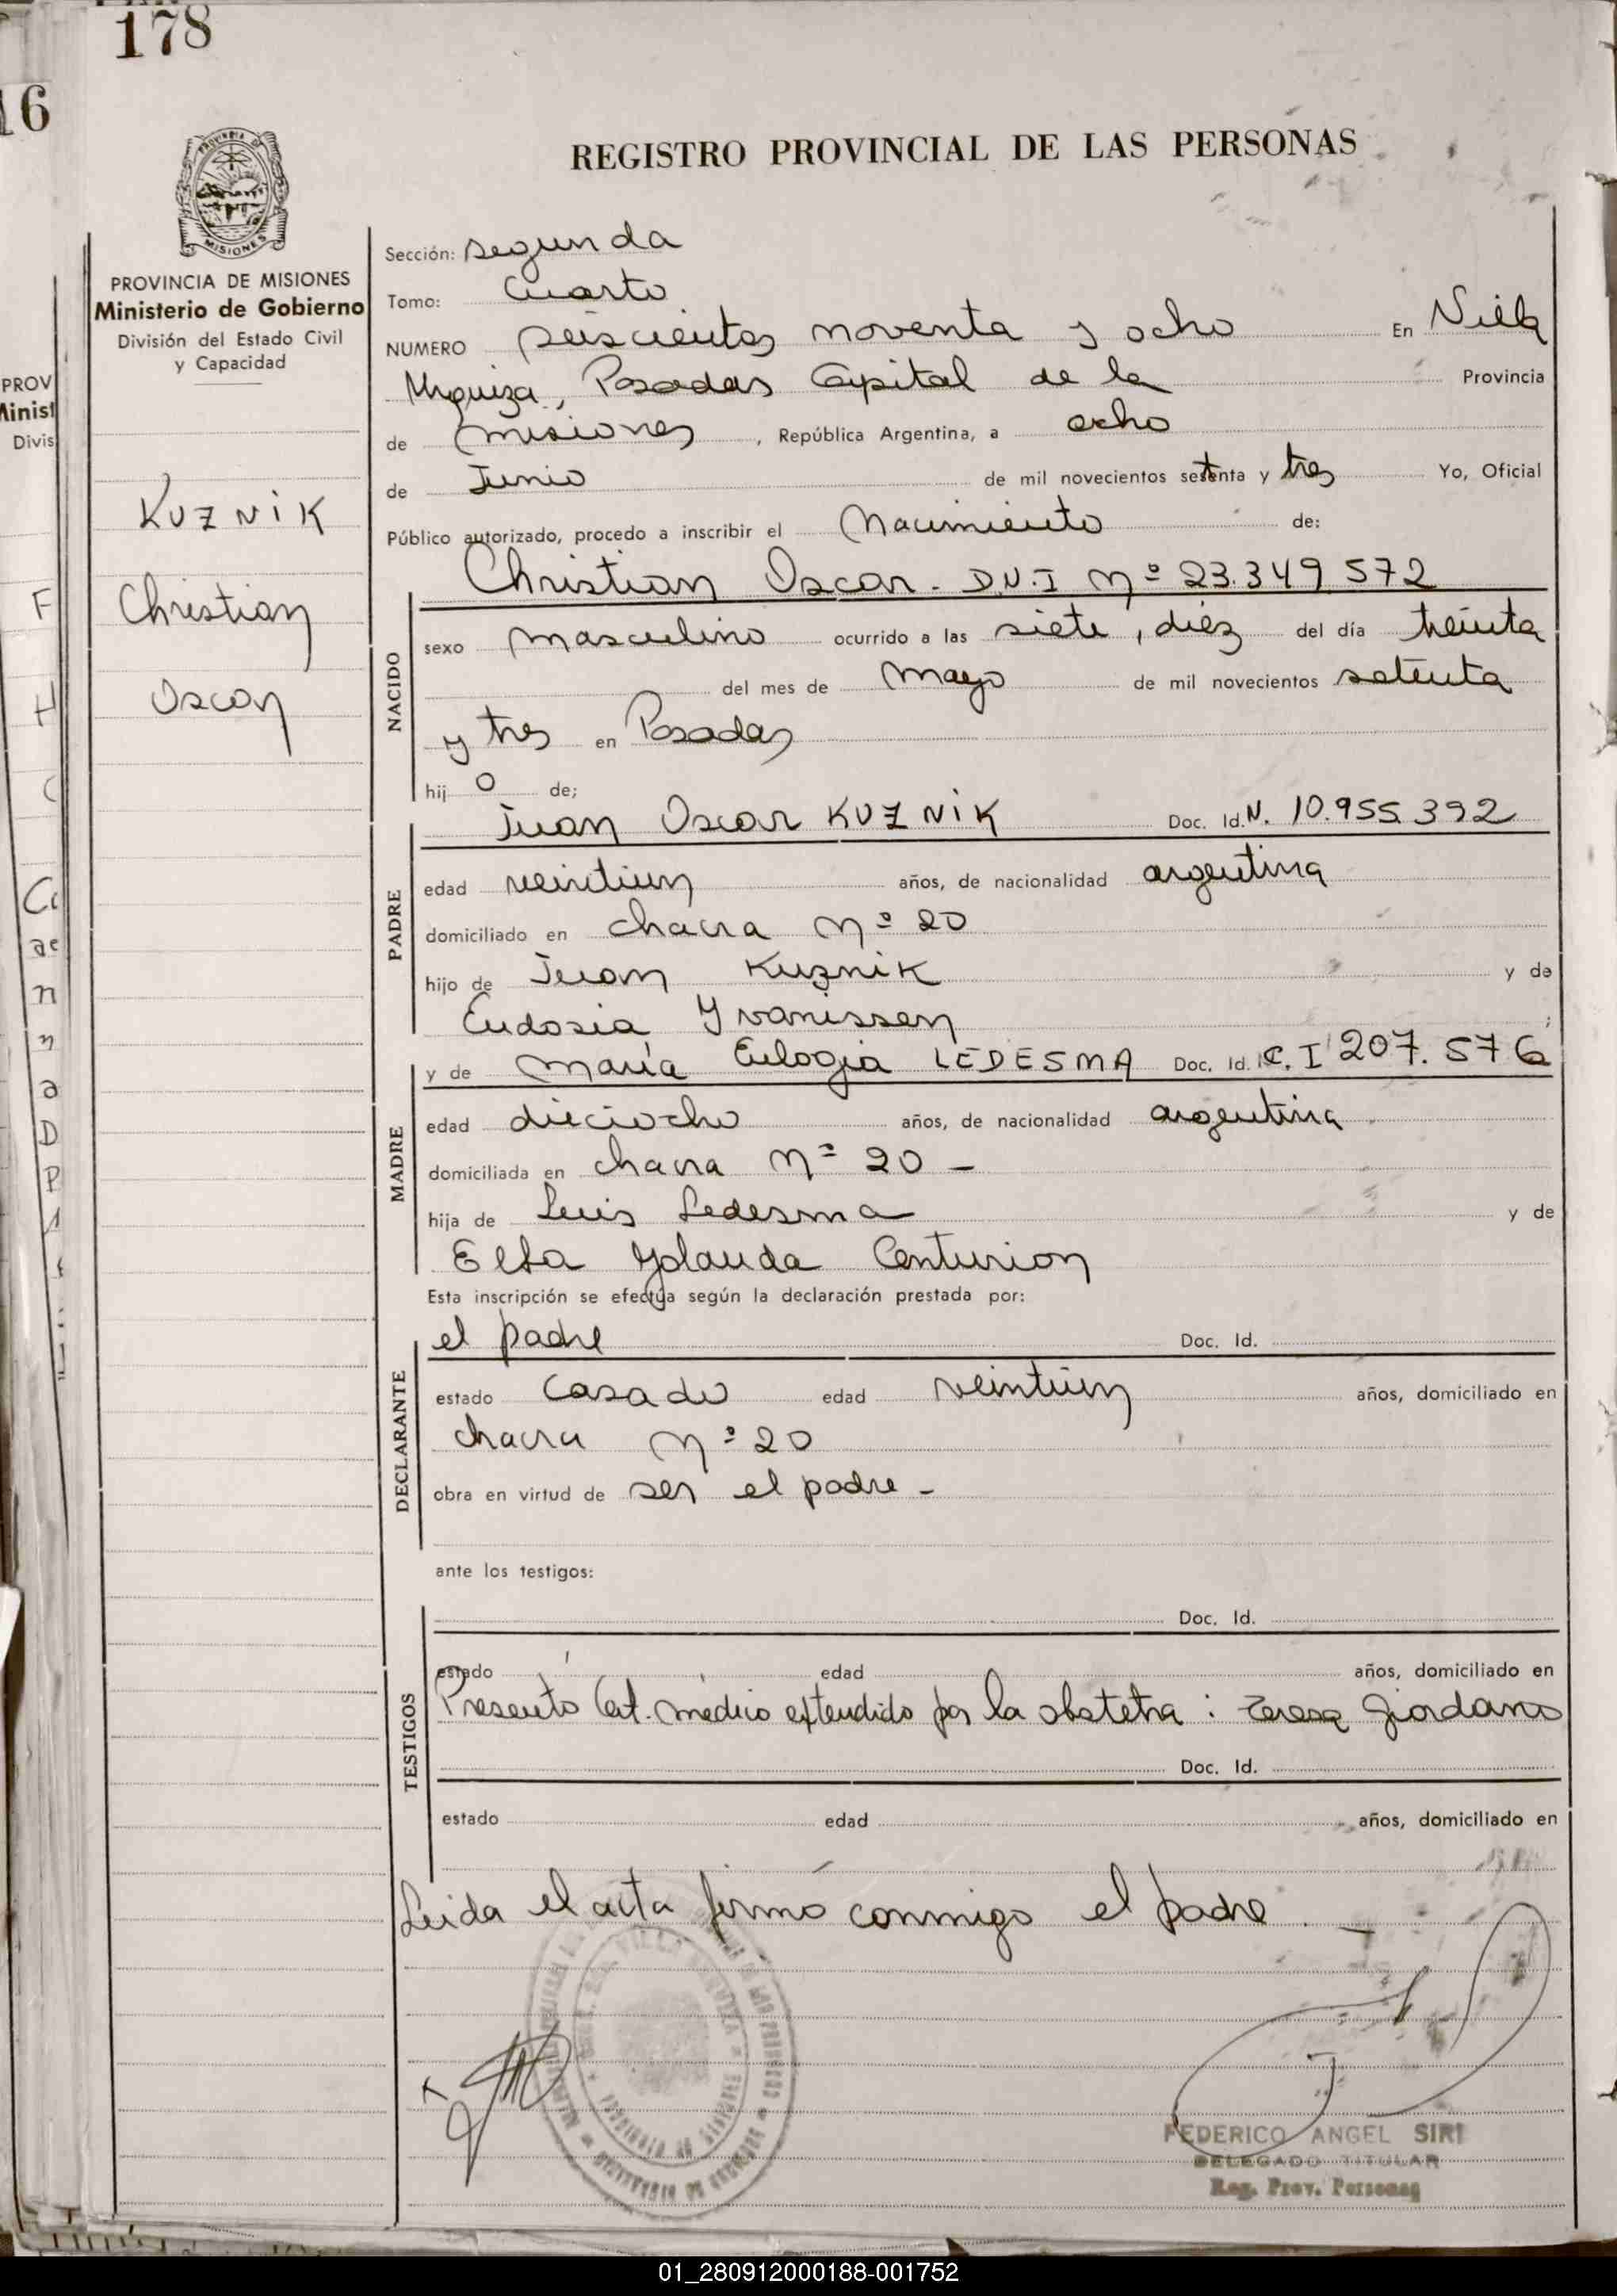 178
16
REGISTRO PROVINCIAL DE LAS PERSONAS
PROVINCIA DE
MISIONES
PROVINCIA DE MISIONES
Ministerio de Gobierno
División del Estado Civil
y Capacidad
PROV
Minist
Divis
KUZNIK
Christian
Oscar
Sección: segunda
Tomo: Cuarto
NUMERO seiscientos noventa y ocho En Villa
Urquiza, Posadas Capital de la Provincia
de misiones, República Argentina, a ocho
de Junio de mil novecientos setenta y tres Yo, Oficial
Público autorizado, procedo a inscribir el Nacimiento de:
Christian Oscar - D.N.I Nº 23.349.572
NACIDO
sexo masculino ocurrido a las siete, diez del día treinta
del mes de mayo de mil novecientos setenta
y tres en Posadas
hij o de;
Juan Oscar KUZNIK Doc. Id. N. 10.955.392
PADRE
edad veintiun años, de nacionalidad argentina
domiciliado en chacra Nº 20
hijo de Juan Kuznik y de
Eudosia Yvanissen ;
y de María Eulogia LEDESMA Doc. Id. C.I 207.576
MADRE
edad dieciocho años, de nacionalidad argentina
domiciliada en chacra Nº 20 -
hija de Luis Ledesma y de
Elba Yolanda Centurion
Esta inscripción se efectúa según la declaración prestada por:
el padre Doc. Id.
DECLARANTE
estado Casado edad veintiún años, domiciliado en
chacra Nº 20
obra en virtud de ser el padre -
ante los testigos:
Doc. Id.
TESTIGOS
estado edad años, domiciliado en
Presentó Cert. médico extendido por la obstetra : Teresa Giordano
Doc. Id.
estado edad años, domiciliado en
Leida el acta firmó conmigo el padre. -
VILLA URQUIZA
PROVINCIA DE MISIONES
FEDERICO ANGEL SIRI
DELEGADO TITULAR
Reg. Prov. Personas
01_280912000188-001752